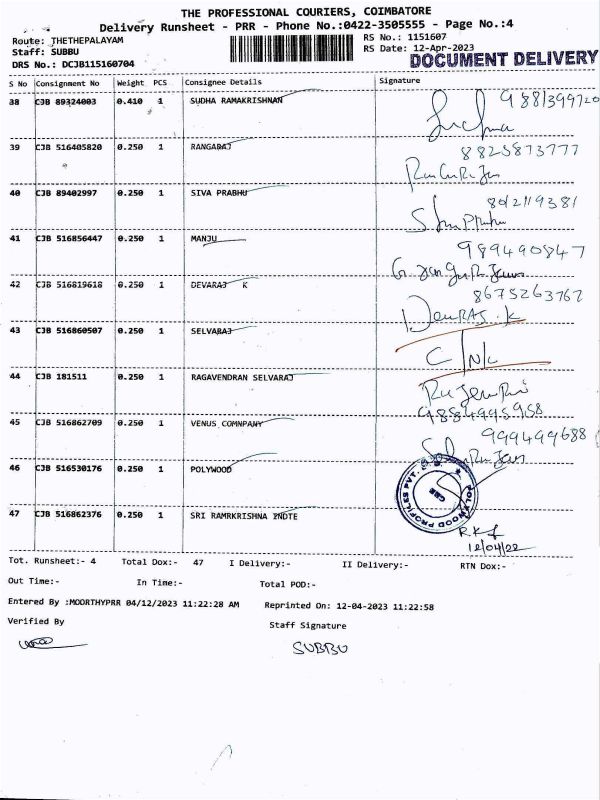 THE PROFESSIONAL COURIERS, COIMBATORE
Delivery Runsheet - PRR - Phone No.:0422-3505555 - Page No.:4
Route: THETHEPALAYAM
RS No.: 1151607
Staff: SUBBU
RS Date: 12-Apr-2023
DRS No.: DCJB115160704
DOCUMENT DELIVERY
S No Consignment No Weight PCS Consignee Details Signature
38 CJB 89324003 0.410 1 SUDHA RAMAKRISHNAN
39 CJB 516405820 0.250 1 RANGARAJ 8825873777
40 CJB 89402997 0.250 1 SIVA PRABHU
41 CJB 516856447 0.250 1 MANJU 989490847
42 CJB 516819618 0.250 1 DEVARAJ K 8675263762
DevRAJ.K
43 CJB 516860507 0.250 1 SELVARAJ
44 CJB 181511 0.250 1 RAGAVENDRAN SELVARAJ
45 CJB 516862709 0.250 1 VENUS COMNPANY 999499688
46 CJB 516530176 0.250 1 POLYWOOD
POLYWOOD PROFILES PVT. LTD.
CBE
47 CJB 516862376 0.250 1 SRI RAMRKRISHNA INDTE
12/04/22
Tot. Runsheet:- 4 Total Dox:- 47 I Delivery:- II Delivery:- RTN Dox:-
Out Time:- In Time:- Total POD:-
Entered By :MOORTHYPRR 04/12/2023 11:22:28 AM Reprinted On: 12-04-2023 11:22:58
Verified By Staff Signature
SUBBU